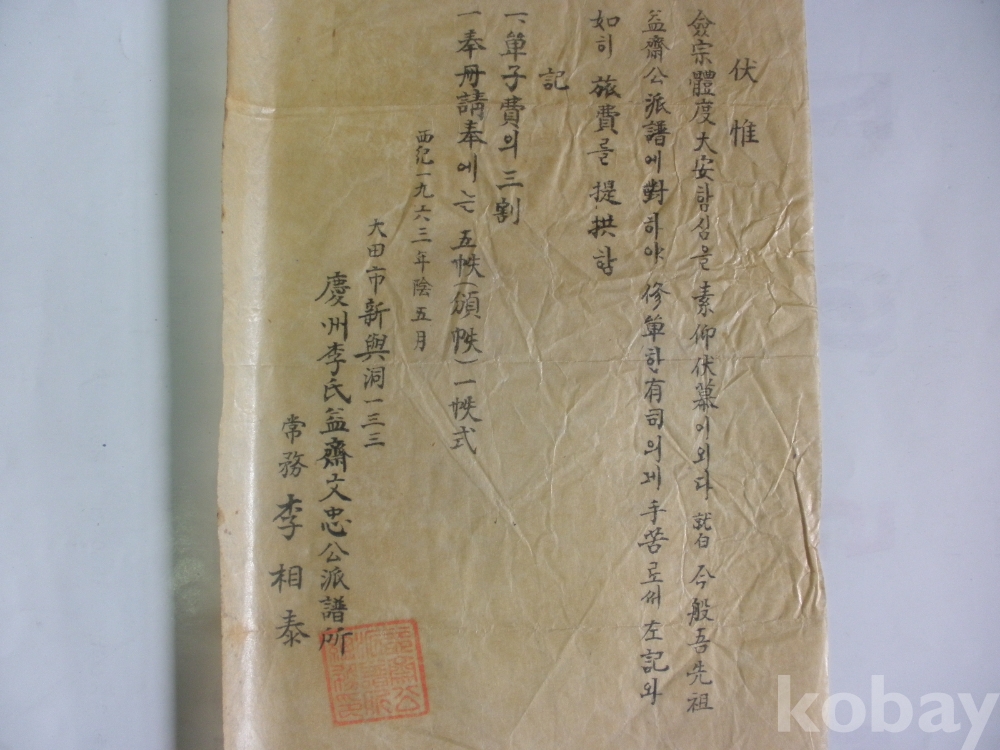 伏惟
僉宗體度大安함심을 素仰伏慕이외다 就白 今般吾先祖
益齋公派譜에對하야 修單한有司의게手苦로써左記와
如히 旅費를 提拱함
記
一、單子費의三割
一 奉冊請奉에는 五帙(頒帙)一帙式
西紀一九六三年陰五月
大田市新興洞一三三
慶州李氏益齋文忠公派譜所
常務 李相泰
kobay